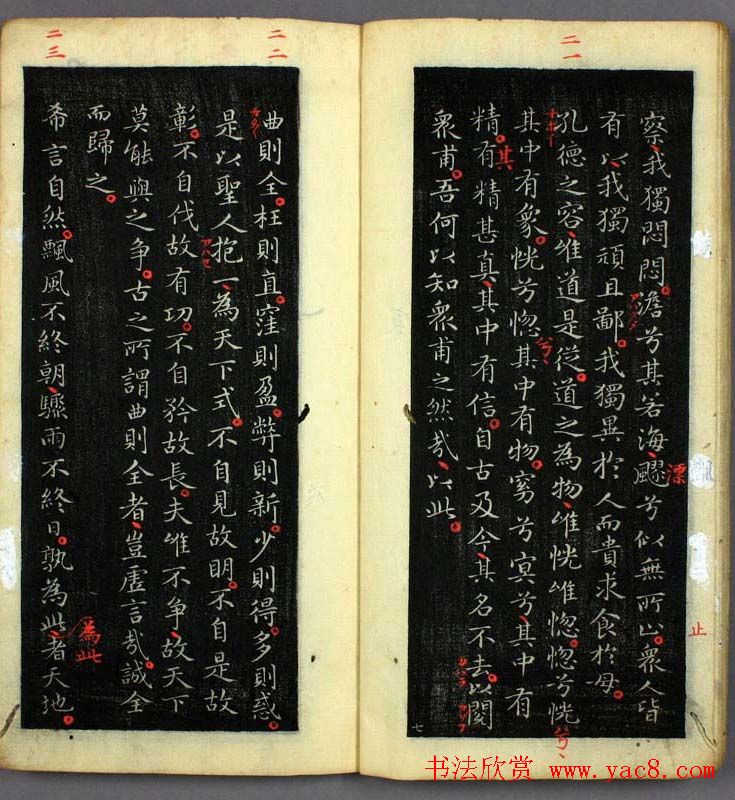 二一
察、我獨悶悶。澹兮其若海、飂兮似無所止。衆人皆
漂
止
有以、我獨頑且鄙。我獨異於人而貴求食於母。
孔德之容、唯道是從。道之為物、唯恍唯惚。惚兮恍
兮、
其中有象。恍兮惚其中有物。窈兮冥兮、其中有
兮、
精。有精甚真、其中有信。自古及今、其名不去。以閱
其
衆甫。吾何以知衆甫之然哉、以此。
七
二二
曲則全。枉則直。窪則盈。弊則新。少則得。多則惑。
是以聖人抱一、為天下式。不自見故明。不自是故
彰。不自伐故有功。不自矜故長。夫唯不争、故天下
莫能與之争。古之所謂曲則全者、豈虛言哉。誠全
而歸之。
二三
希言自然。飄風不終朝、驟雨不終日。孰為此、者天地。
為此
书法欣赏 www.yac8.com